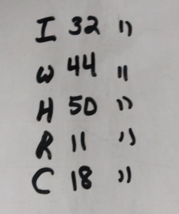 I 32 "
W 44 "
H 50 "
R 11 "
C 18 "